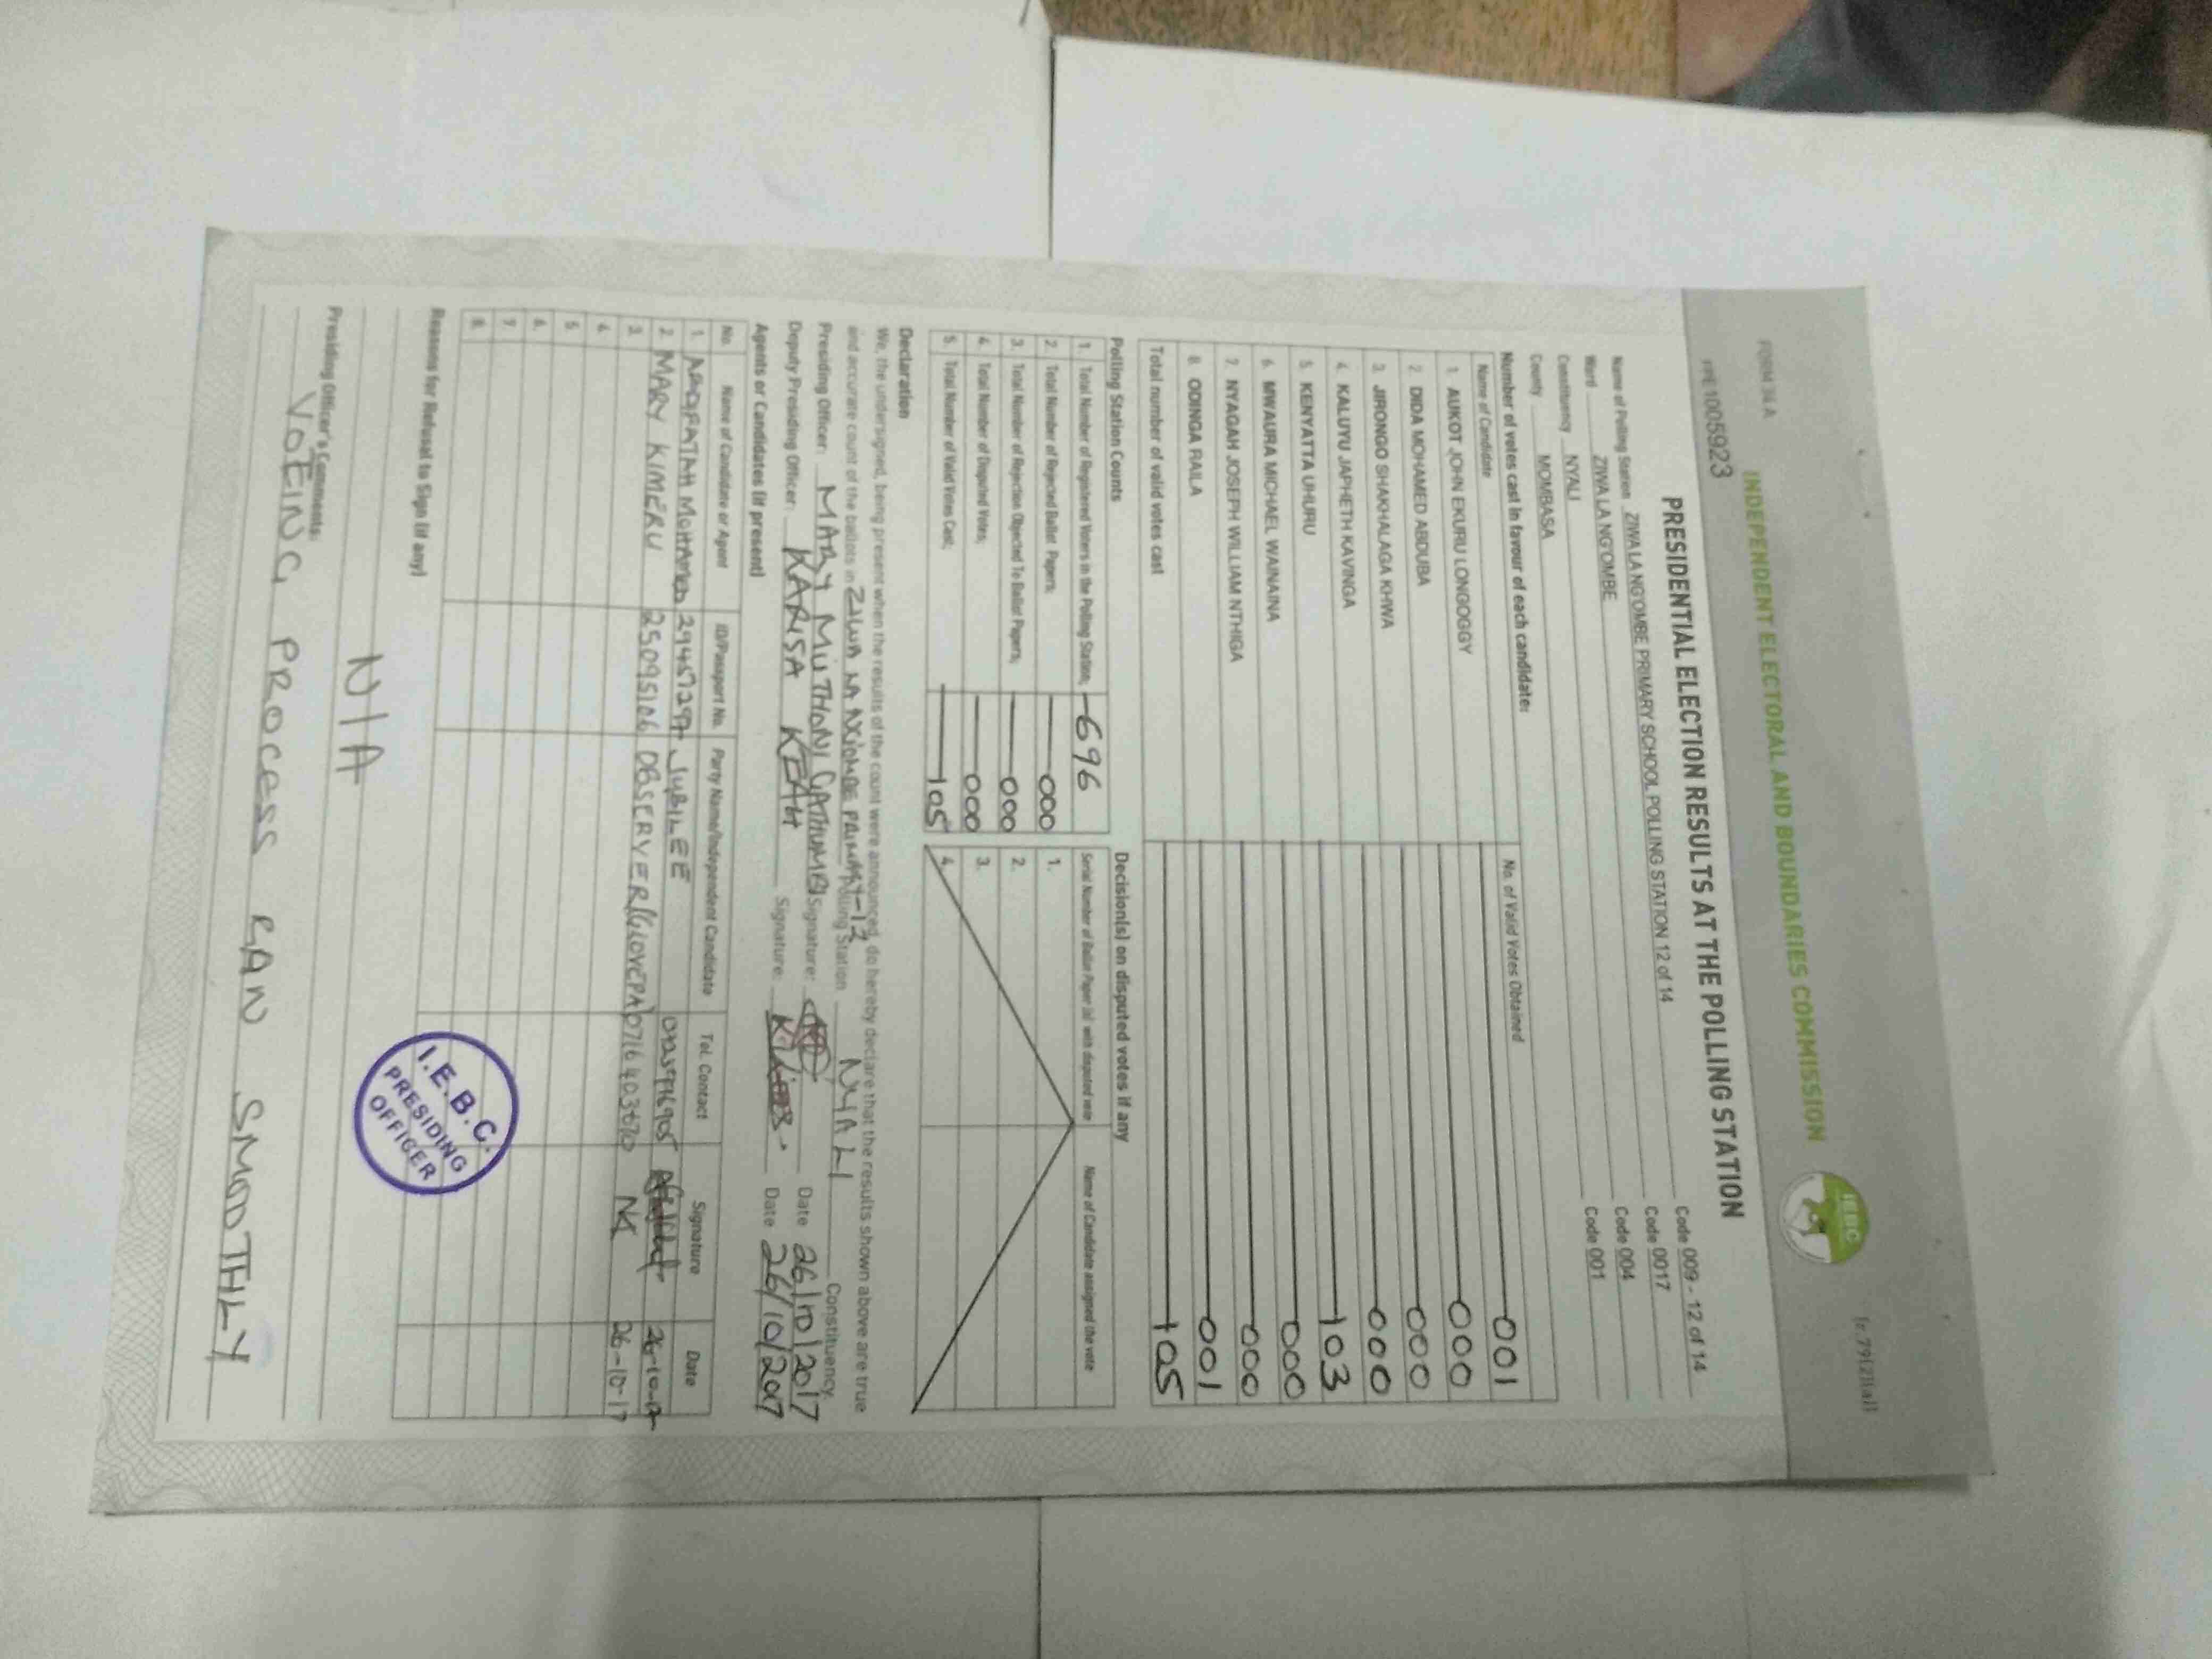 FORM 34 A
[r.79(2)(a)]
INDEPENDENT ELECTORAL AND BOUNDARIES COMMISSION
IEBC
1005923
PRESIDENTIAL ELECTION RESULTS AT THE POLLING STATION
Name of Polling Station ZIWA LA NG'OMBE PRIMARY SCHOOL POLLING STATION 12 of 14 Code 009 - 12 of 14
Ward ZIWA LA NG'OMBE Code 0017
Constituency NYALI Code 004
County MOMBASA Code 001
Number of votes cast in favour of each candidate:
Name of Candidate No. of Valid Votes Obtained
1. AUKOT JOHN EKURU LONGOGGY 001
2. DIDA MOHAMED ABDUBA 000
3. JIRONGO SHAKHALAGA KHWA 000
4. KALUYU JAPHETH KAVINGA 000
5. KENYATTA UHURU 103
6. MWAURA MICHAEL WAINAINA 000
7. NYAGAH JOSEPH WILLIAM NTHIGA 000
8. ODINGA RAILA 001
Total number of valid votes cast 105
Polling Station Counts
1. Total Number of Registered Voters in the Polling Station; 696
2. Total Number of Rejected Ballot Papers; 000
3. Total Number of Rejection Objected To Ballot Papers; 000
4. Total Number of Disputed Votes; 000
5. Total Number of Valid Votes Cast; 105
Decision(s) on disputed votes if any
Serial Number of Ballot Paper (s) with disputed vote Name of Candidate assigned the vote
1.
2.
3.
4.
Declaration
We, the undersigned, being present when the results of the count were announced, do hereby declare that the results shown above are true
and accurate count of the ballots in Polling Station NYALI Constituency.
Presiding Officer: MARY MUTHONI Signature: Date 26/10/2017
Deputy Presiding Officer: KARISA Signature: Date 26/10/2017
Agents or Candidates (if present)
No. Name of Candidate or Agent ID/Passport No. Party Name/Independent Candidate Tel. Contact Signature Date
1. MOHAMED JUBILEE
2. MARY KIMERU 25095106 OBSERVER 26-10-17
3.
4.
5.
6.
7.
8.
Reasons for Refusal to Sign (if any)
N/A
Presiding Officer's Comments:
VOTING PROCESS RAN SMOOTHLY
I.E.B.C.
PRESIDING
OFFICER